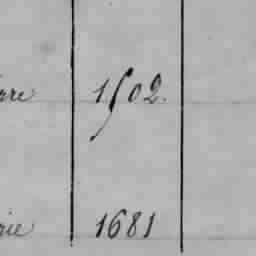 are 1502.
rie 1681